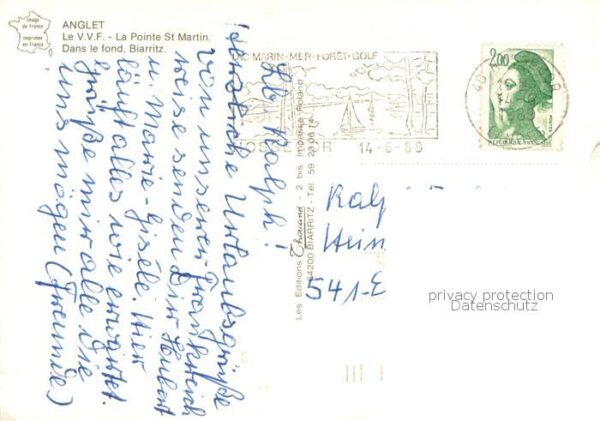 Image
de France
Imprimée
en France
ANGLET
Le V.V.F. - La Pointe St Martin.
Dans le fond, Biarritz.
LAC MARIN-MER-FORÊT-GOLF
14-6-89
2,00
REPUBLIQUE FRANÇAISE
Lb Ralph!
Herzliche Urlaubsgrüße
von unserer Frankreich
reise senden Dir Hubert
u. Marie-Gisele. Hier
läuft alles wie erwartet.
Grüße mir alle die
uns mögen (Freunde)
Les Editions Thouand - 2 bis, Impasse
64200 BIARRITZ - Tél. 59
Ralf
Hein
541-E
privacy protection
Datenschutz